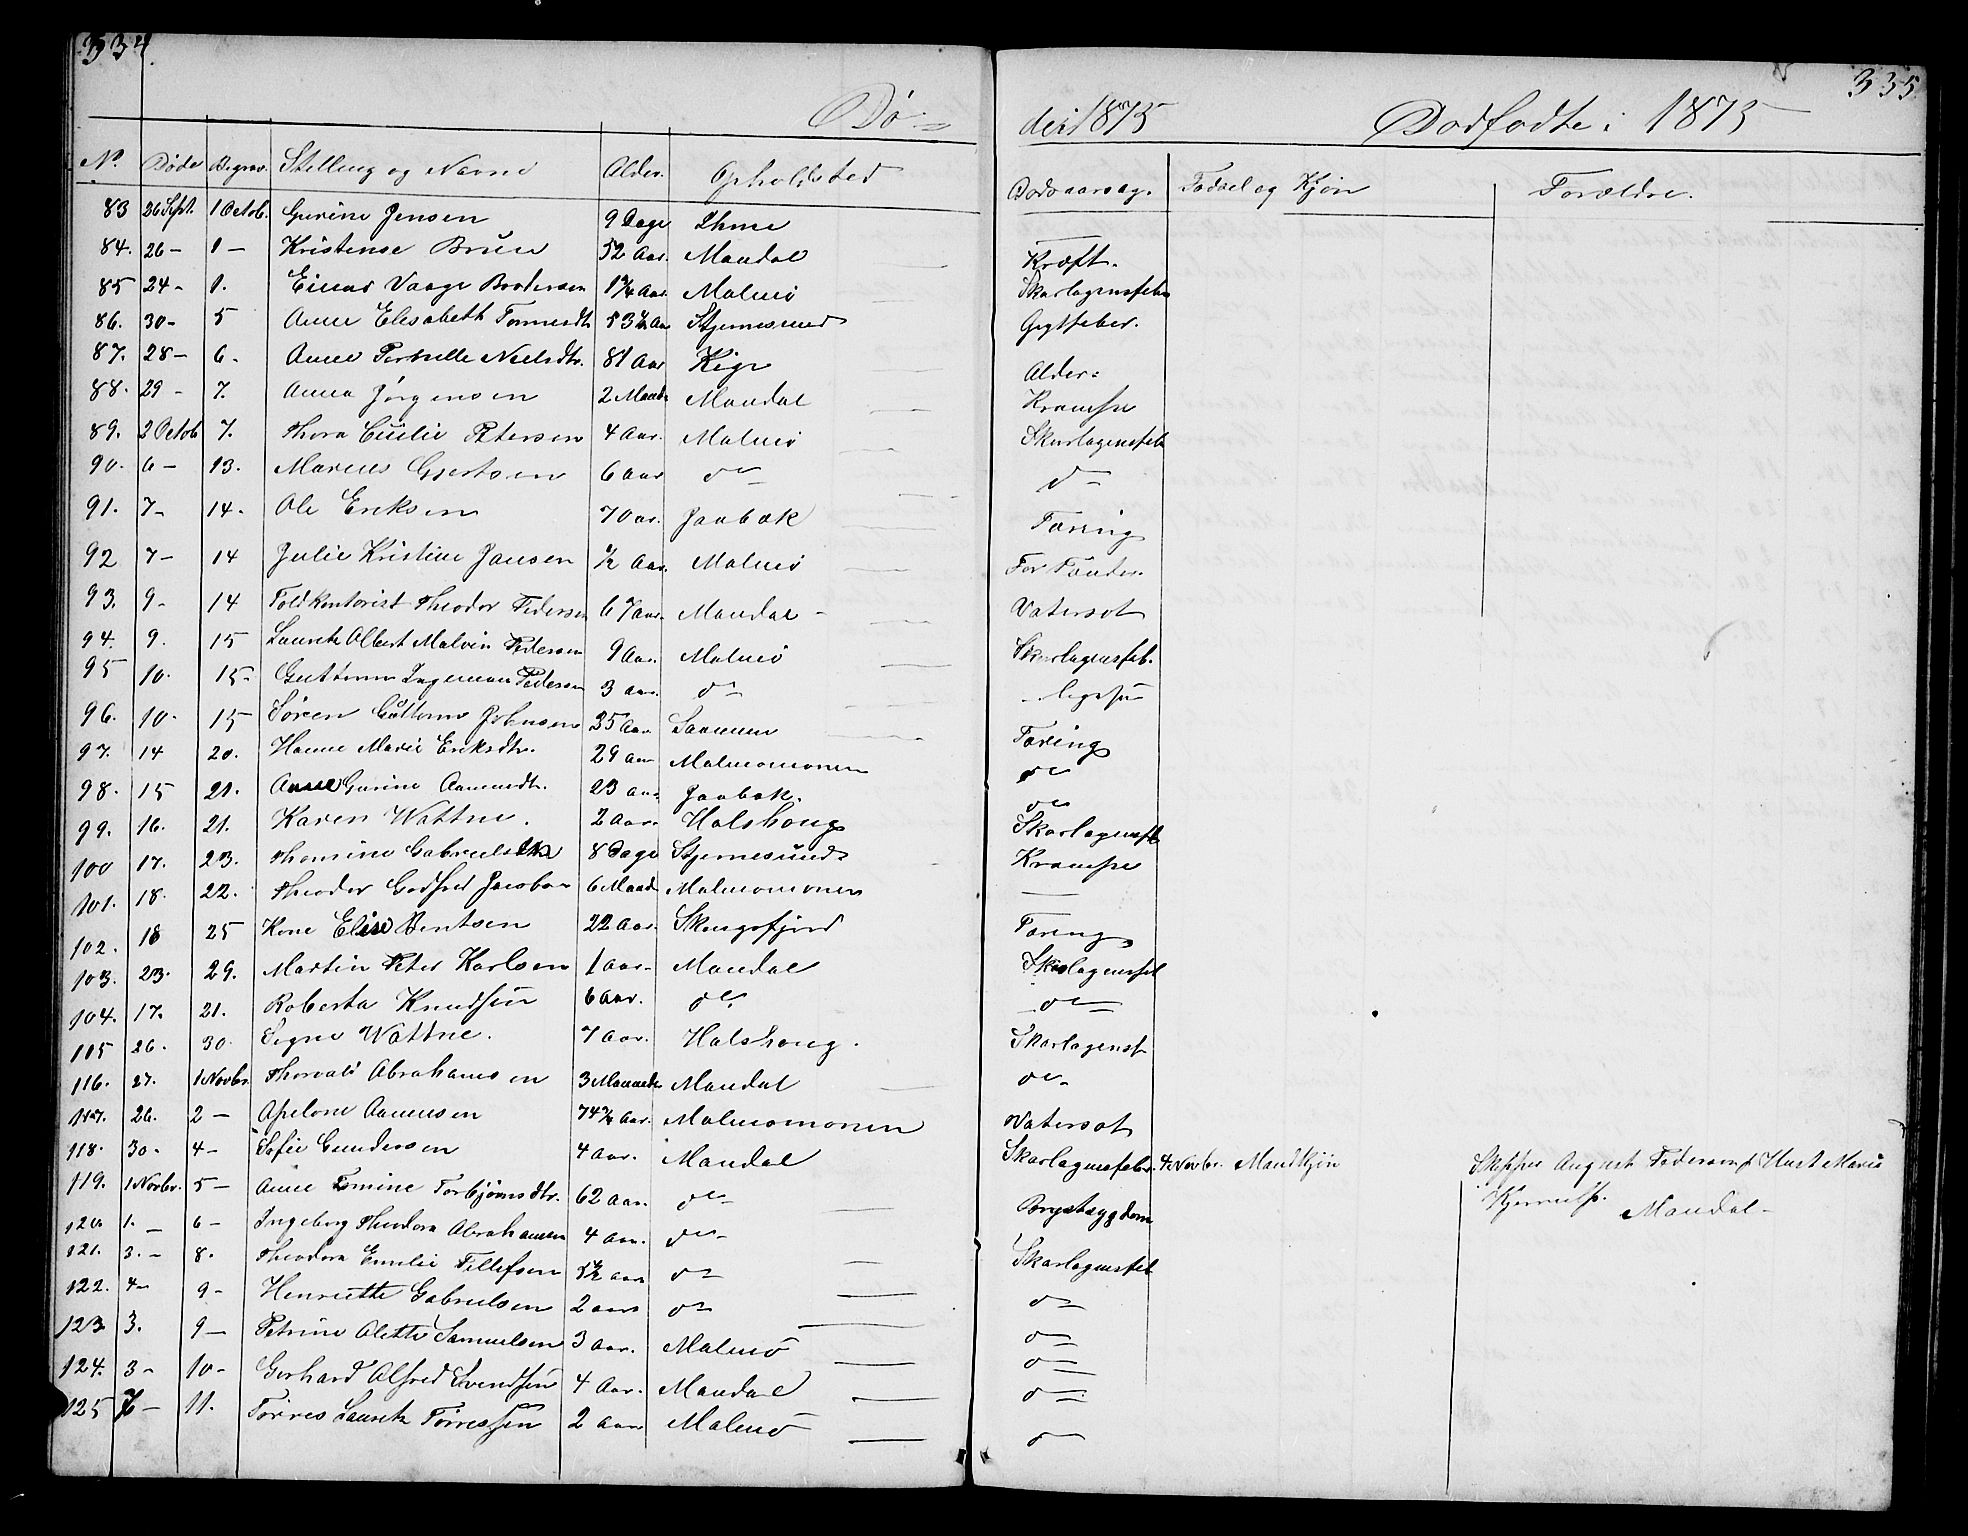 334.
335
Dø-
de i 1875
Dødfødte i 1875
No. Døde Begrav. Stilling og Navne Alder. Opholdsted Dødsaarsag. Fødsel og Kjøn Forældre.
83 26 Sept. 1 Octob. Gurine Jensen 9 Dage Ihme —
84. 26 – 1 – Kristense Bruu 52 Aar. Mandal Kræft.
85 24 – 1. Einar Vaage Brodersen 1 Aar Malmø Skarlagensfeber
86. 30 – 5 Anne Elisabeth Tønnesdtr. 53 ½ Aar Stjernesund Gigtfeber.
87. 28 – 6. Anne Pernille Nielsdtr. 81 Aar Kige Alder:
88. 29 – 7. Anna Jørgensen 2 Maaned Mandal Krampe
89. 2 Octob 7. Thora Cecilie Petersen 4 Aar. Malmø Skarlagensfeb
90. 6 – 13. Marius Gjertsen 6 Aar do do
91. 7 – 14. Ole Eriksen 70 ar. Jaabæk Tæring
92 7 – 14 Julie Kristine Jansen ½ Aar. Malmø For Tænder.
93. 9 – 14 Toldkontorist Theodor Pedersen 6 Aar. Mandal – Vatersot
94. 9. 15 Lauritz Albert Malvin Pedersen 9 Aar. Malmø Skarlagensfeb.
95 10. 15 – Guttorm Ingeman Pedersen 3 aar. do
96. 10. 15 Søren Guttorm Johnsen 35 Aar Saanum Tæring
97. 14 20. Hanne Marie Eriksdtr. 29 aar Malmømonen do
98. 15 21. Anne Gurine Aanensdtr. 23 aar Jaabæk. do
99. 16. 21. Karen Wattne. 2 Aar. Halshoug Skarlagensfb
100 17. 23. Thomine Gabrielsen 8 Dage Stjernesund Krampe
101. 18. 22. Theodor Godfred Jacobsen 6 Maand Malmømonen —
102. 18 25 Kone Elise Bentsen 22 Aar. Skougsfjord Tæring
103. 23. 29. Martin Peter Karlsen 1 aar – Mandal Skarlagensfeb
104. 17. 21. Roberta Knudsen 6 Aar. do do
115 26. 30. Signe Wattne. 7 Aar. Halshoug. Skarlagensf
116. 27. 1 Novbr. Thorvald Abrahamsen 3 Maaneder Mandal do
117. 26. 2 – Apelone Aanensen 74 ½ Aar. Malmømonen Vatersot
118. 30. 4 – Sofie Gundersen 4 aar. Mandal Skarlagensfeber. 4 Novbr. Mandkjøn Skipper August Pedersen & Hust Marie
119. 1 Novbr. 5 – Anne Tomine Torbjørnsdtr. 62 Aar. do Brystsygdom
Mandal –
120. 1. – 6 – Ingeborg Theodora Abrahamsen 4 aar. do
121. 3. – 8. Theodora Emilie Tellefsen 5 ½ aar do Skarlagensfeb
122. 4 – 9 – Henriette Gabrielsen 2 aar do do
123 3. 9 – Petrine Alette Samuelsen 3 aar. Malmø do
do
124. 3 – 10 – Gerhard Alfred Svendsen 4 Aar. Mandal do
125 7 – 11. Tørres Lauritz Tørressen 2 aar Malmø do